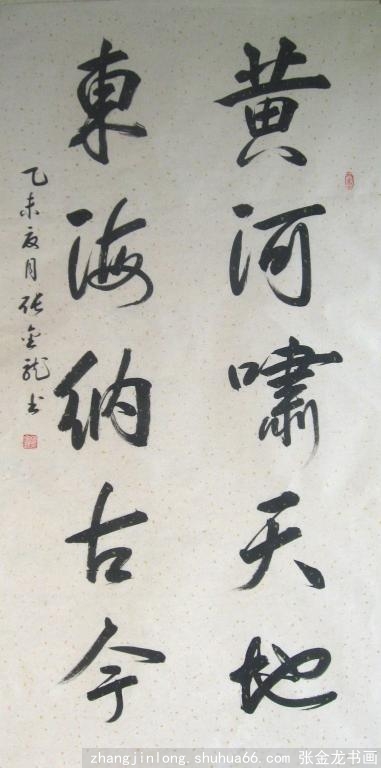 黄河啸天地
東海纳古今
乙未夏月张金龙书
zhangjinlong.shuhua66.com 张金龙书画